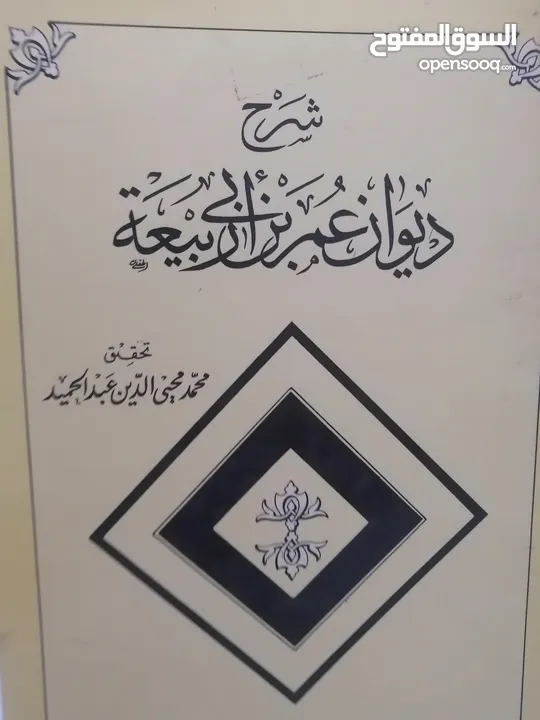 السوق المفتوح
opensooq.com
شرح
ديوان عمر بن أبي ربيعة
تحقيق
محمد محيي الدين عبد الحميد